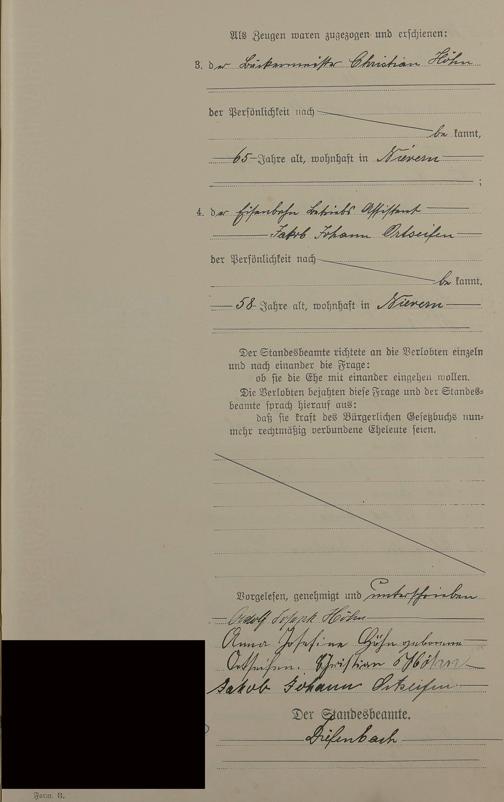 Als Zeugen waren zugezogen und erschienen:
3. der Bäckermeister Christian Höhn
der Persönlichkeit nach
be kannt,
65 Jahre alt, wohnhaft in Nievern
;
4. der Eisenbahn Betriebs Assistent
Jakob Johann Ortseifen
der Persönlichkeit nach
be kannt,
58 Jahre alt, wohnhaft in Nievern
Der Standesbeamte richtete an die Verlobten einzeln
und nach einander die Frage:
ob sie die Ehe mit einander eingehen wollen.
Die Verlobten bejahten diese Frage und der Standes-
beamte sprach hierauf aus:
daß sie kraft des Bürgerlichen Gesetzbuchs nun-
mehr rechtmäßig verbundene Eheleute seien.
Vorgelesen, genehmigt und unterschrieben
Adolf Joseph Höhn
Anna Josefine Höhn geborene
Ortseifen. Christian Höhn
Jakob Johann Ortseifen
Der Standesbeamte.
Diefenbach
Form. B.